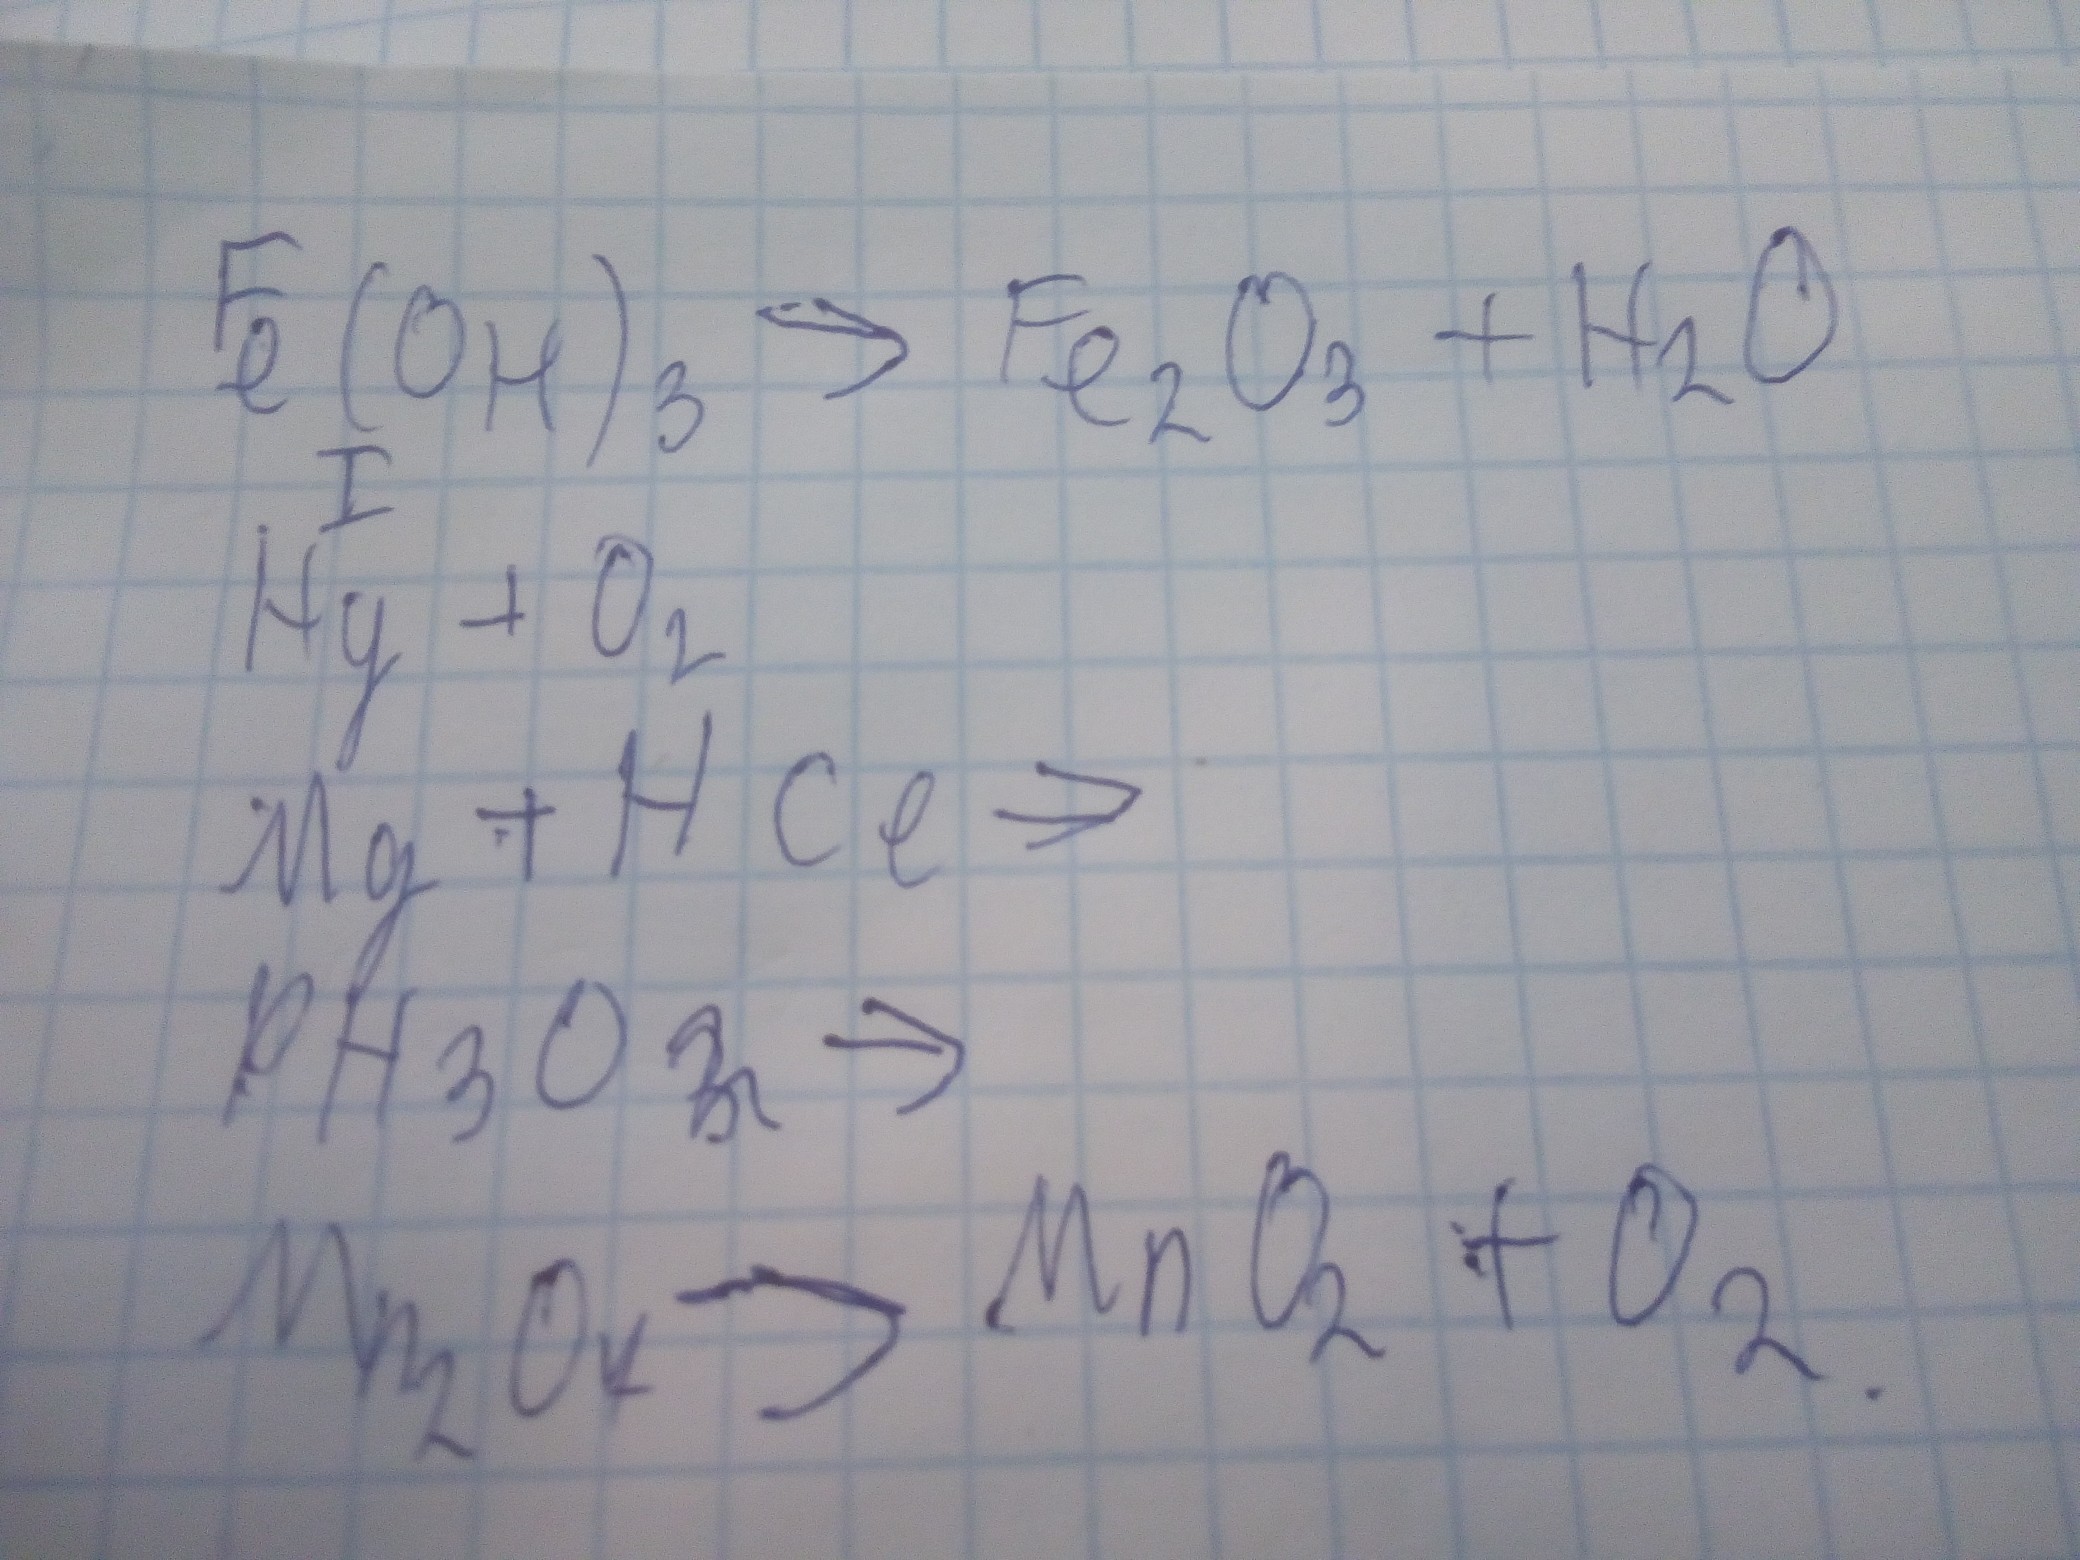 Fe(OH)₃ → Fe₂O₃ + H₂O
I
Hg + O₂
Mg + HCl →
PH₃O₃ →
Mn₂O₇ → MnO₂ + O₂.